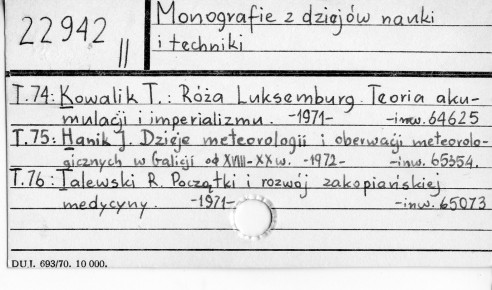 22942 II
Monografie z dziejów nauki
i techniki
T.74: Kowalik T.: Róża Luksemburg. Teoria aku-
mulacji i imperializmu. -1971- -inw. 64625
T.75: Hanik J. Dzieje meteorologii i oberwacji meteorolo-
gicznych w Galicji od XVIII-XX w. -1972- -inw. 65354.
T.76: Talewski R. Początki i rozwój zakopiańskiej
medycyny. -1971- -inw. 65073
DUJ. 693/70. 10 000.